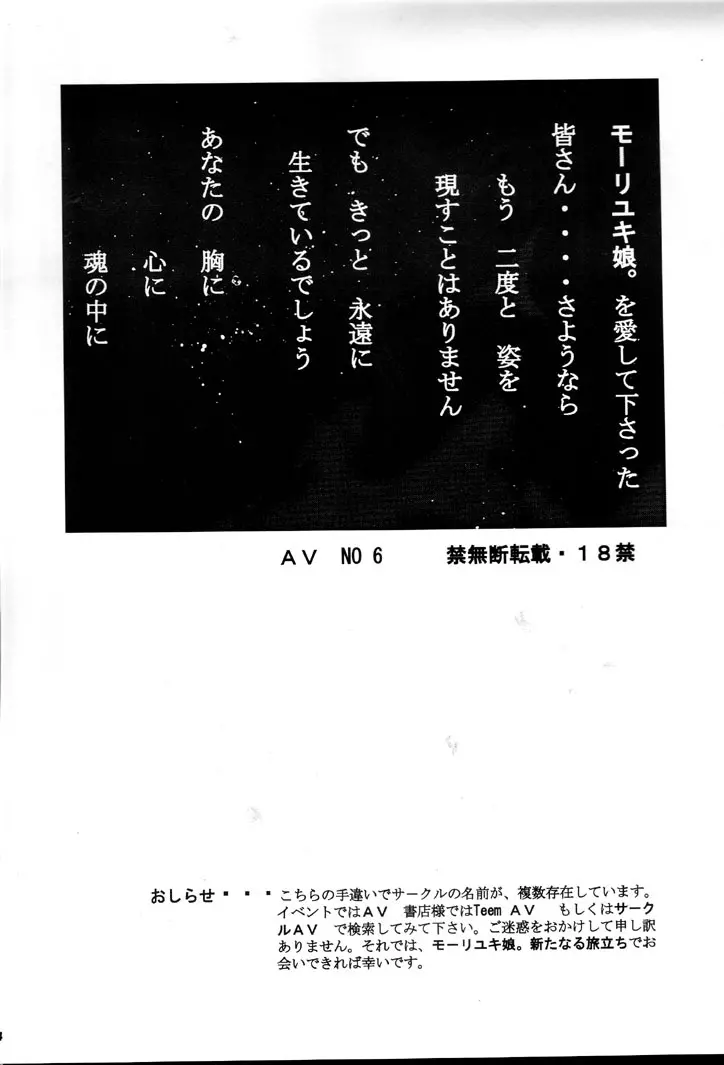 モーリユキ娘。を愛して下さった
皆さん・・・・さようなら
もう 二度と 姿を
現すことはありません
でも きっと 永遠に
生きているでしょう
あなたの 胸に
心に
魂の中に
AV NO6 禁無断転載・18禁
おしらせ・・・こちらの手違いでサークルの名前が、複数存在しています。
イベントではAV 書店様ではTeem AV もしくはサーク
ルAV で検索してみて下さい。ご迷惑をおかけして申し訳
ありません。それでは、モーリユキ娘。新たなる旅立ちでお
会いできれば幸いです。